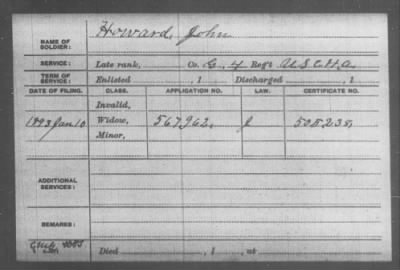 Howard, John
NAME OF SOLDIER:
SERVICE: Late rank, Co. G, 4 Reg't U S C H A.
TERM OF SERVICE: Enlisted , 1 Discharged , 1
DATE OF FILING. CLASS. APPLICATION NO. LAW. CERTIFICATE NO.
Invalid,
1893 Jan 10 Widow, 567962. J 505235.
Minor,
ADDITIONAL SERVICES:
REMARKS:
Died , 1 , at